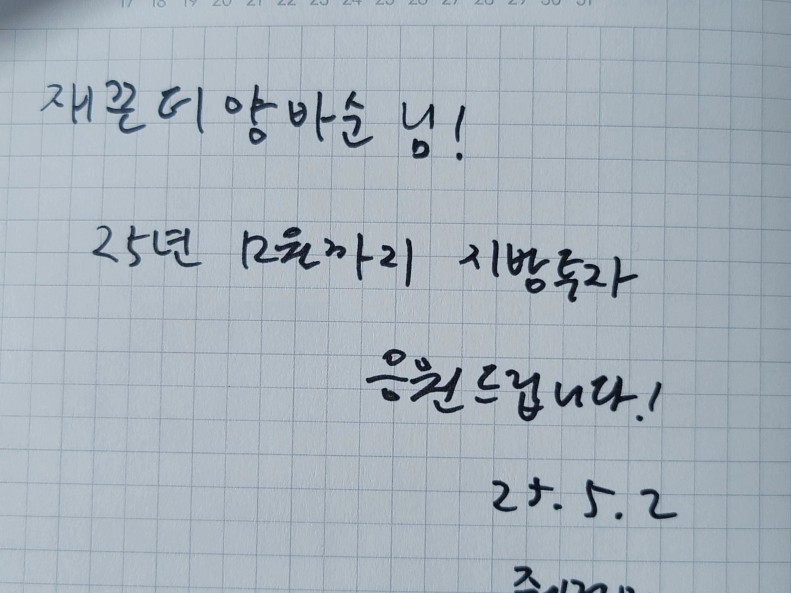 17 18 19 20 21 22 23 24 25 26 27 28 29 30 31
재끈더 양바순 님!
25년 12월까리 지방투자
응원드립니다!
25. 5. 2